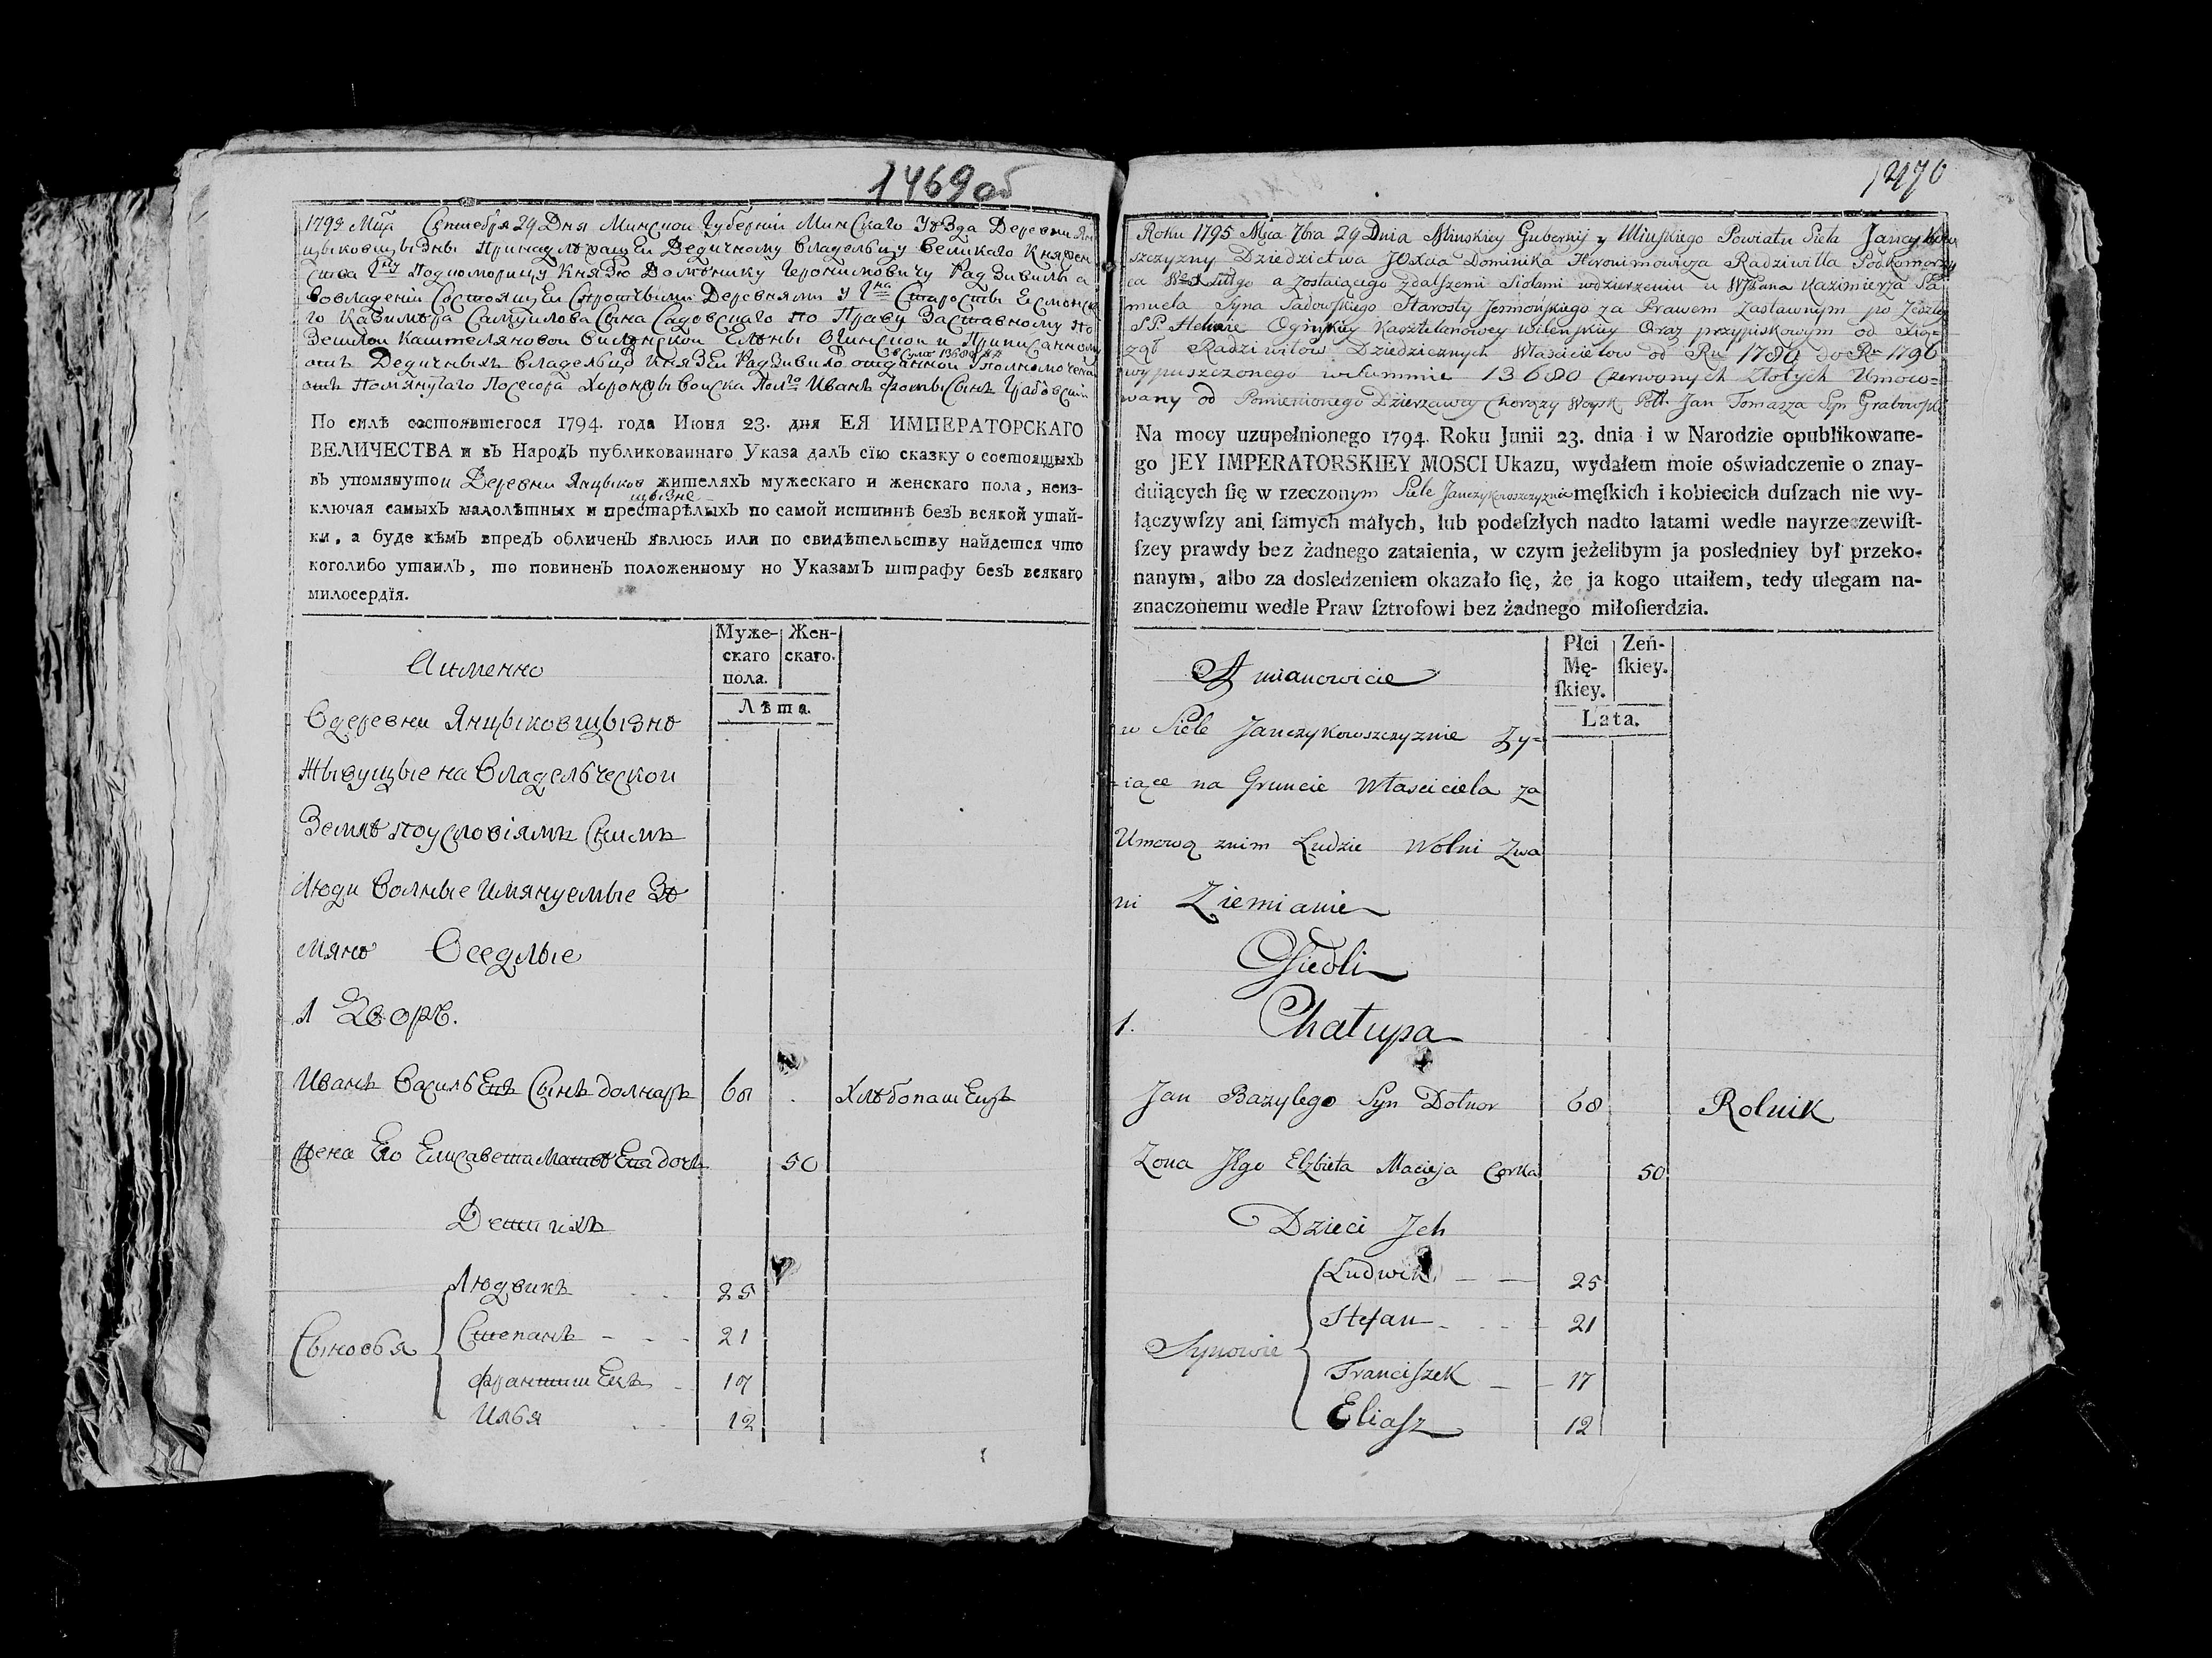 1469об
1795 Мца Сентебря 29 Дня Минской Губерніи Минскаго Уѣзда Деревни Ян
цыковщызны Принадлежащей Дедичному Владельцу Великаго Княжен
ства Подкоморицу Князю Доминику Геронимовичу Радзивилу а
Вовладеніи Состоящей Спротчыми Деревнями у Старосты Есмонска
го Казимера Самуилова Сына Садовскаго по Праву Заставному по
Зешлой Каштеляновой Виленской Елены Огинской и Приписанному
отъ Дедичныхъ Владельцо Князей Радзивило отданной Уполномочен
в Суме 13680
отъ Помянутаго Посесора Хоронжы Войска Пол Иванъ Фомы Сынъ Грабовскій
По силѣ состоявшегося 1794. года Июня 23. дня ЕЯ ИМПЕРАТОРСКАГО
ВЕЛИЧЕСТВА и въ Народъ публикованнаго Указа далъ сїю сказку о состоящыхъ
въ упомянутой Деревни Янцыков жителяхъ мужескаго и женскаго пола, неиз-
щызне
ключая самыхъ малолѣтныхъ и престарѣлыхъ по самой истиннѣ безъ всякой утай-
ки, а буде кѣмъ впредъ обличенъ явлюсь или по свидѣтельству найдется что
коголибо утаилъ, то повиненъ положенному по Указамъ штрафу безъ всякаго
милосердїя.
Муже- Жен-
скаго скаго.
пола.
Лѣта.
Аименно
Вдеревни Янцыковщызнѣ
Жывущые на Владельческой
Землѣ поусловіямъ Снимъ
Люди Волные Имянуемые Зѣ
мяне Оседлые
1 Дворъ.
Иванъ Васильевъ Сынъ Долнаръ 68 Хлѣбопашецъ
Жена Его Елисавета Матѣева дочь 50
Дети ихъ
Людвикъ 25
Степанъ 21
Сыновья
Францишекъ 17
Илья 12
1470
Roku 1795 Mca 7bra 29 Dnia Minskiey Gubernij y Minskiego Powiatu Siela Janczykow
szczyzny Dziedzictwa JOxcia Dominika Hieronimowicza Radziwiłła Podkomorzy
ca Litgo a zostaiącego zdalszemi Siołami wdzierzeniu u WJPana Kazimierza Sa
muela Syna Sadowskiego Starosty Jesmońskiego za Prawem Zastawnym po Zeszłey
S.P. Helenie Ogińskiey Kasztelanowey Wilenskiey Oraz przypiskowym od Xią-
ząt Radziwiłow Dziedzicznych Właścicielow od Ru 1784 do Ru 1796
wypuszczonego wsummie 13680 Czerwonych Złotych Umoco=
wany od Pomienionego Dzierżawcy Chorąży Woysk Pols. Jan Tomasza Syn Grabowski
Na mocy uzupełnionego 1794. Roku Junii 23. dnia i w Narodzie opublikowane-
go JEY IMPERATORSKIEY MOSCI Ukazu, wydałem moie oświadczenie o znay-
duiących ſię w rzeczonym Siele Janczykowszczyznie męſkich i kobiecich duſzach nie wy-
łączywſzy ani ſamych małych, lub podeſzłych nadto latami wedle nayrzeczewiſt-
ſzey prawdy bez żadnego zataienia, w czym jeżelibym ja posledniey był przeko-
nanym, albo za dosledzeniem okazało ſię, że ja kogo utaiłem, tedy ulegam na-
znaczonemu wedle Praw ſztrofowi bez żadnego miłoſierdzia.
Płci Zeń-
Mę- ſkiey.
ſkiey.
Lata.
A mianowicie
w Siele Janczykowszczyznie Zy=
iące na Gruncie Własciciela za
Umową znim Ludzie Wolni Zwa
ni Ziemianie
Osiedli
1. Chałupa
Jan Bazylego Syn Dołnor 68 Rolnik
Zona Jego Elzbieta Macieja Corka 50
Dzieci Jch
Ludwik 25
Stefan 21
Synowie
Franciſzek 17
Eliaſz 12